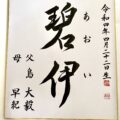 令和四年四月二十二日生
あおい
碧伊
父 島 大毅
母 早紀